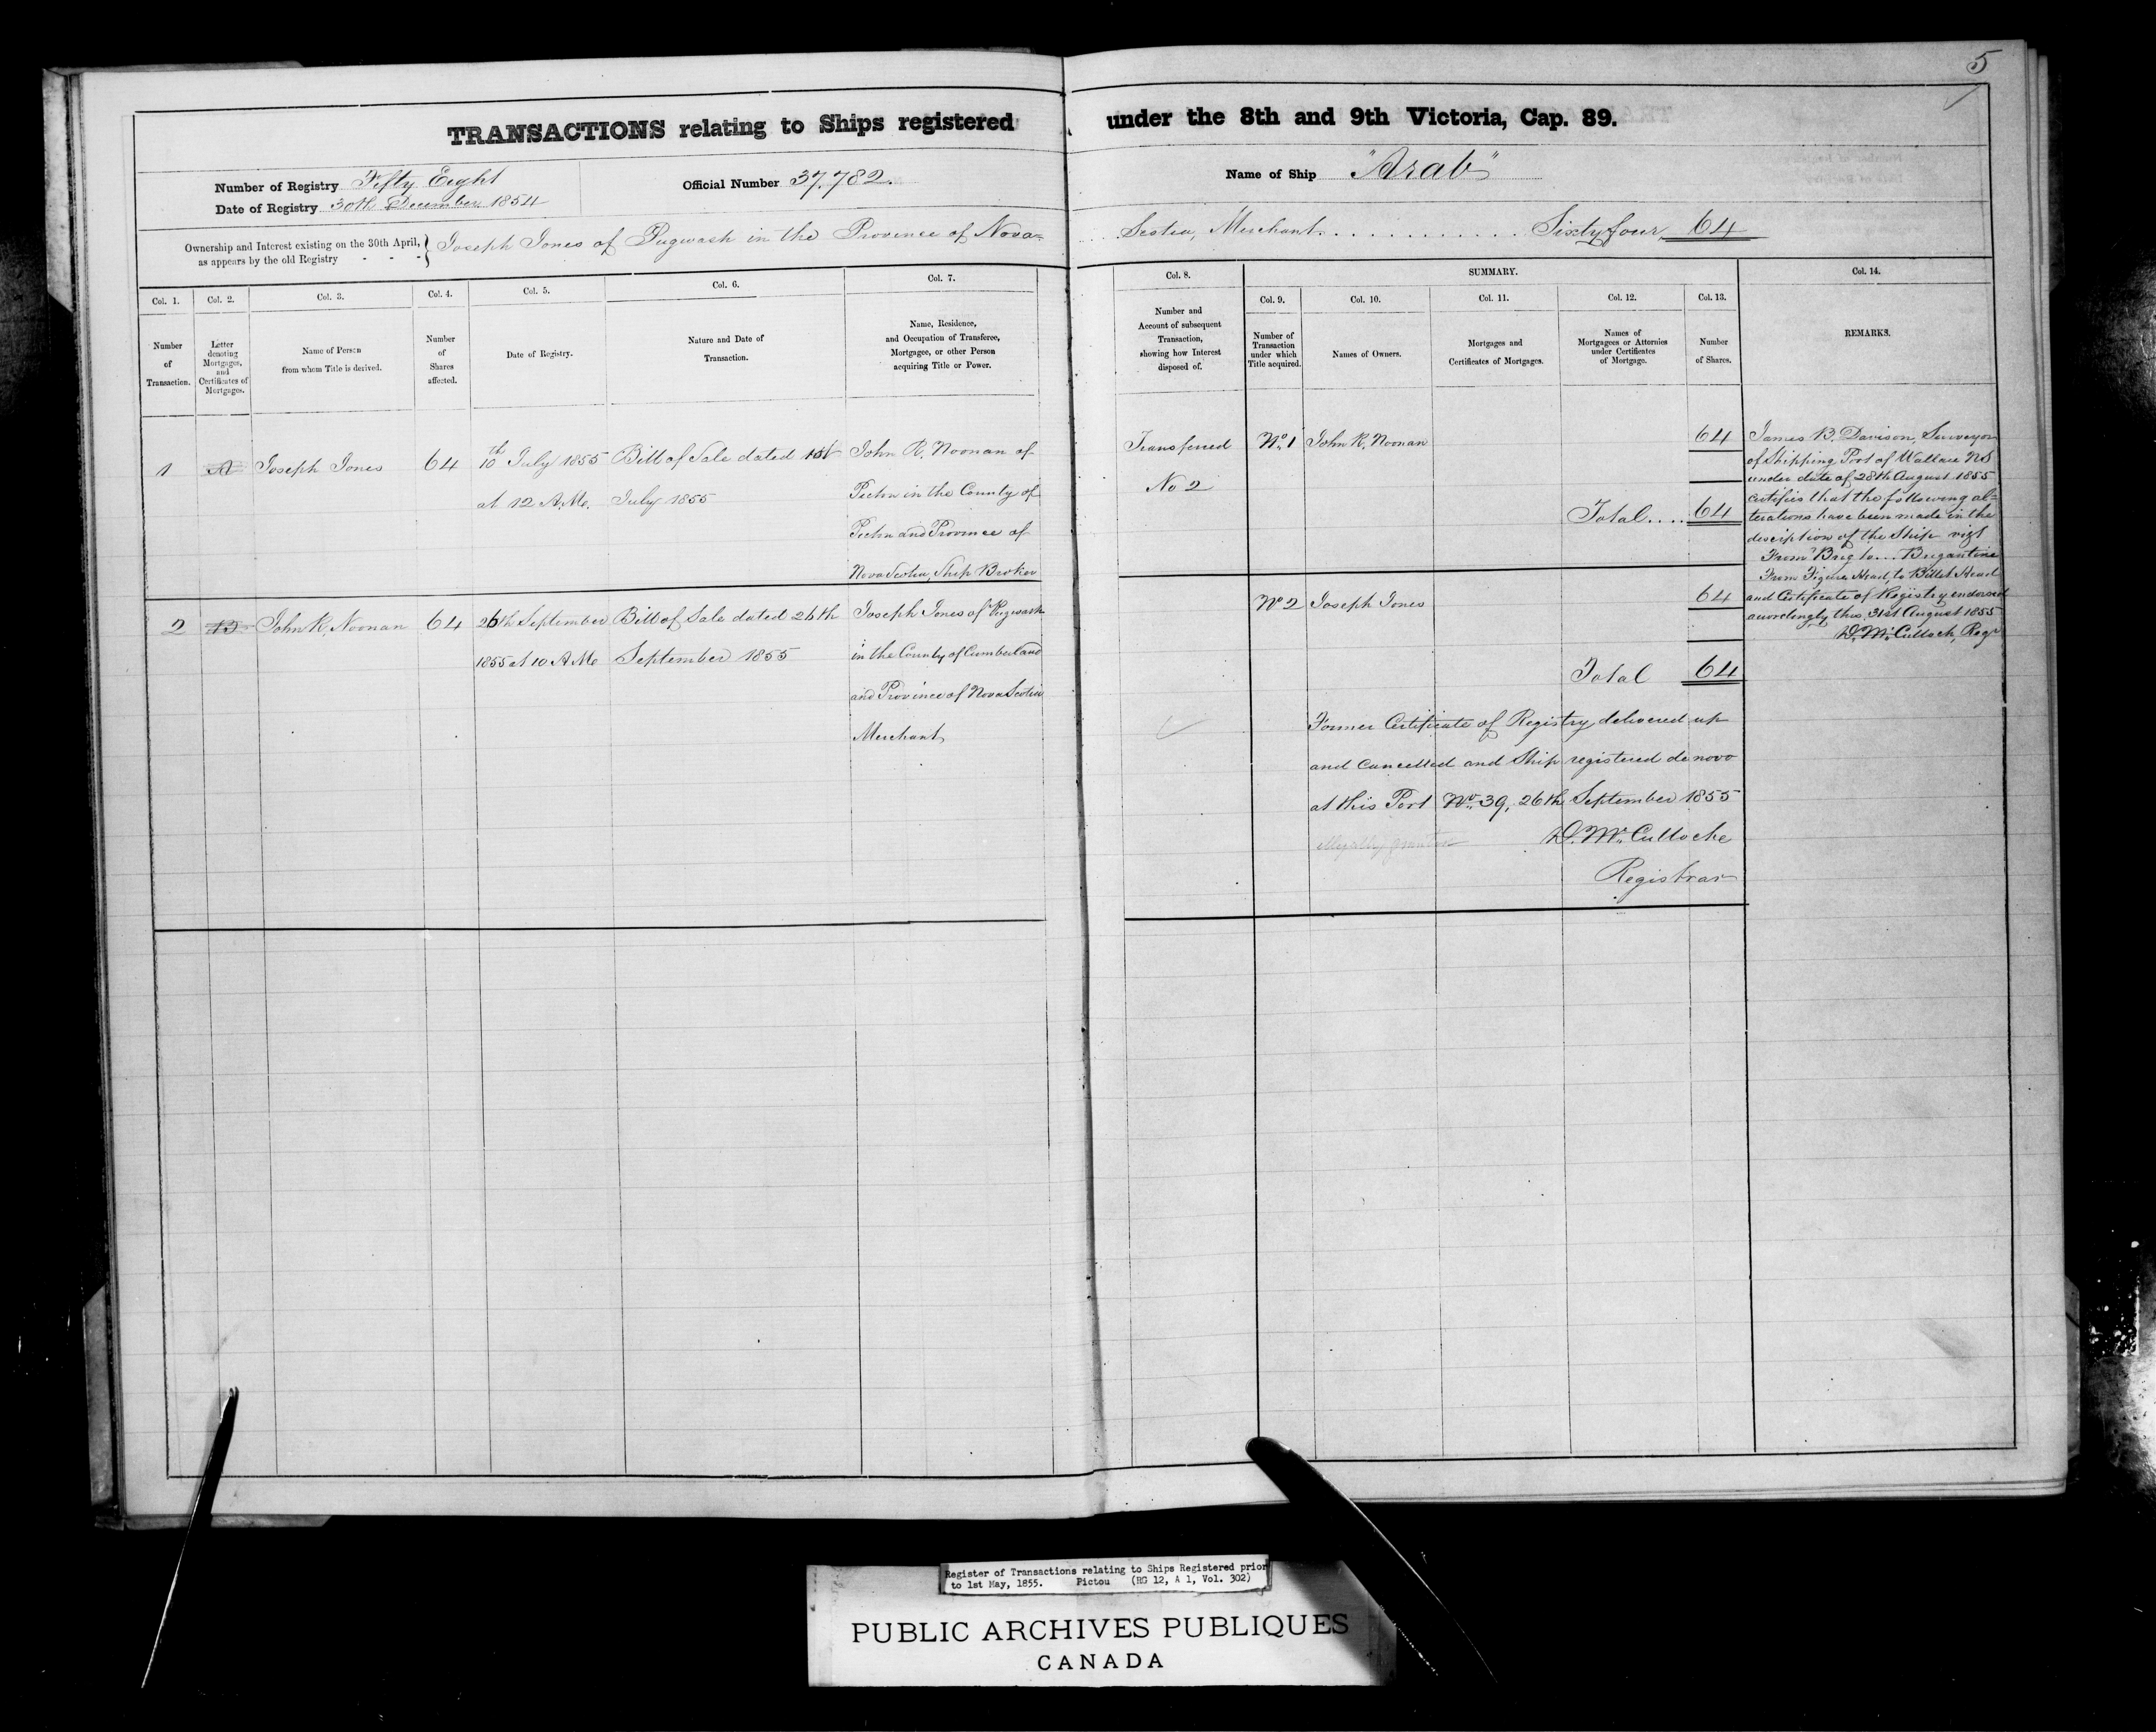 5
TRANSACTIONS relating to Ships registered under the 8th and 9th Victoria, Cap. 89.
Number of Registry Fifty Eight
Date of Registry 30th December 1854
Official Number 37.782.
Name of Ship "Arab"
Ownership and Interest existing on the 30th April, as appears by the old Registry - - -
Joseph Jones of Pugwash in the Province of Nova= Scotia, Merchant. . . . . . . . . . . . Sixty four 64
Col. 1.
Number
of
Transaction.
Col. 2.
Letter
denoting
Mortgages,
and
Certificates of
Mortgages.
Col. 3.
Name of Person
from whom Title is derived.
Col. 4.
Number
of
Shares
affected.
Col. 5.
Date of Registry.
Col. 6.
Nature and Date of
Transaction.
Col. 7.
Name, Residence,
and Occupation of Transferee,
Mortgagee, or other Person
acquiring Title or Power.
Col. 8.
Number and
Account of subsequent
Transaction,
showing how Interest
disposed of.
SUMMARY.
Col. 9.
Number of
Transaction
under which
Title acquired.
Col. 10.
Names of Owners.
Col. 11.
Mortgages and
Certificates of Mortgages.
Col. 12.
Names of
Mortgagees or Attornies
under Certificates
of Mortgage.
Col. 13.
Number
of Shares.
Col. 14.
REMARKS.
1
A
Joseph Jones
64
10th July 1855
at 12 A.M.
Bill of Sale dated 1st
July 1855
John R. Noonan of
Pictou in the County of
Pictou and Province of
Nova Scotia, Ship Broker
Transferred
No 2
No 1
John R. Noonan
64
Total.... 64
James B. Davison, Surveyor
of Shipping Port of Wallace NS
under date of 28th August 1855
certifies that the following al=
terations have been made in the
description of the Ship vizt
From Brig to... Brigantine
From Figure Head, to Billet Head
and Certificate of Registry endorsed
accordingly this 31st August 1855
D. McCulloch, Regr
2
B
John R. Noonan
64
26th September
1855 at 10 A.M.
Bill of Sale dated 26th
September 1855
Joseph Jones of Pugwash
in the County of Cumberland
and Province of Nova Scotia
Merchant
No 2
Joseph Jones
64
Total 64
Former Certificate of Registry delivered up
and Cancelled and Ship registered de novo
at this Port No 39, 26th September 1855
illegally
D. McCulloche
Registrar
Register of Transactions relating to Ships Registered prior
to 1st May, 1855. Pictou (RG 12, A 1, Vol. 302)
PUBLIC ARCHIVES PUBLIQUES
CANADA